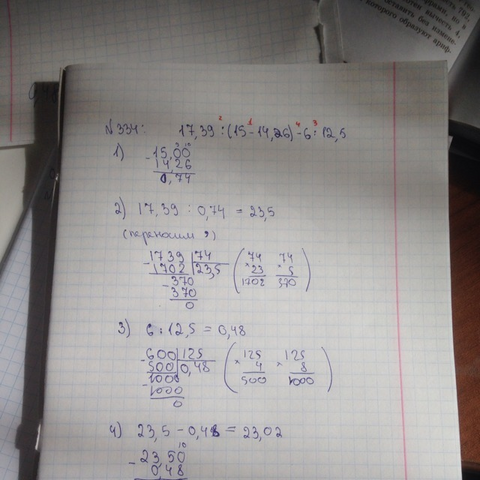 792,
вычесть 4,
оставить без измене-
которого образуют ариф-
N334: 17,39 : (15 - 14,26) - 6 : 12,5
2 1 4 3
1)
10
- 15,00
14,26
0,74
2) 17,39 : 0,74 = 23,5
(переносим ,)
- 1739 | 74 ( 74 74 )
1702 | 23,5 × 23 × 5
- 370 1702 370
370
0
3) 6 : 12,5 = 0,48
- 600 | 125 ( × 125 × 125 )
500 | 0,48 4 8
- 1000 500 1000
1000
0
4) 23,5 - 0,48 = 23,02
10
- 23,50
0,48